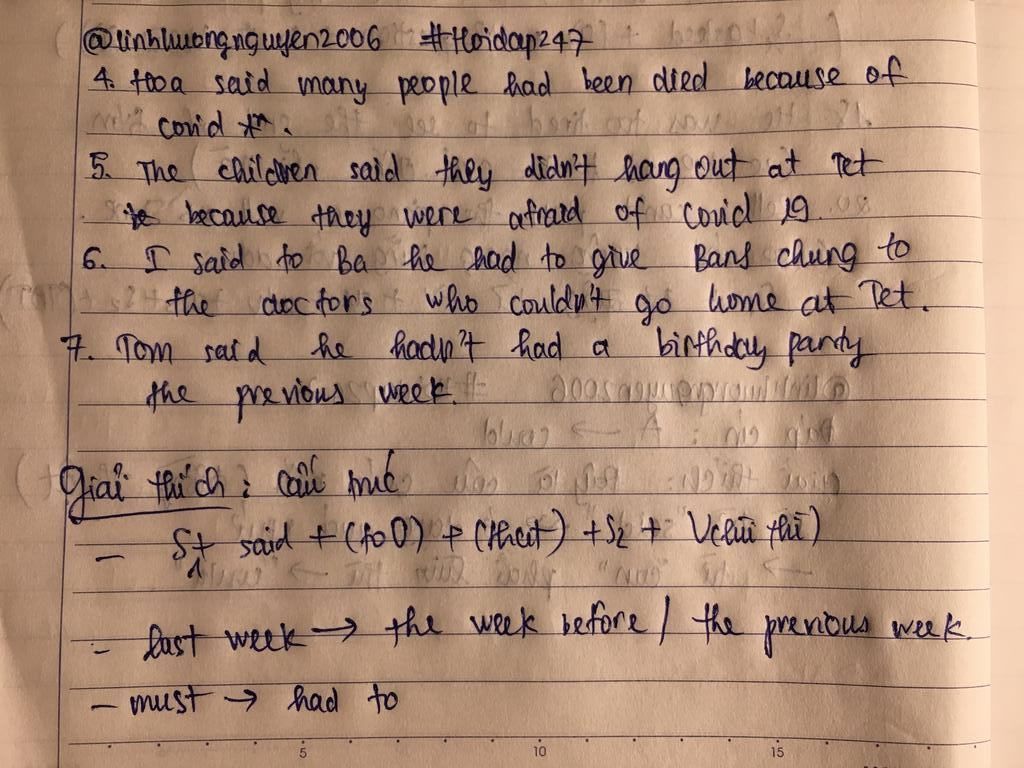 @linhhuongnguyen2006 #Hoidap247
4. Hoa said many people had been died because of
covid
5. The children said they didn't hang out at Tet
because they were afraid of covid 19
6. I said to Ba he had to give Banh chung to
the doctors who couldn't go home at Tet.
7. Tom said he hadn't had a birthday party
the previous week.
Giải thích : Cấu trúc
- S1 + said + (to O) + (that) + S2 + V(lùi thì)
- last week → the week before / the previous week.
- must → had to
5 10 15